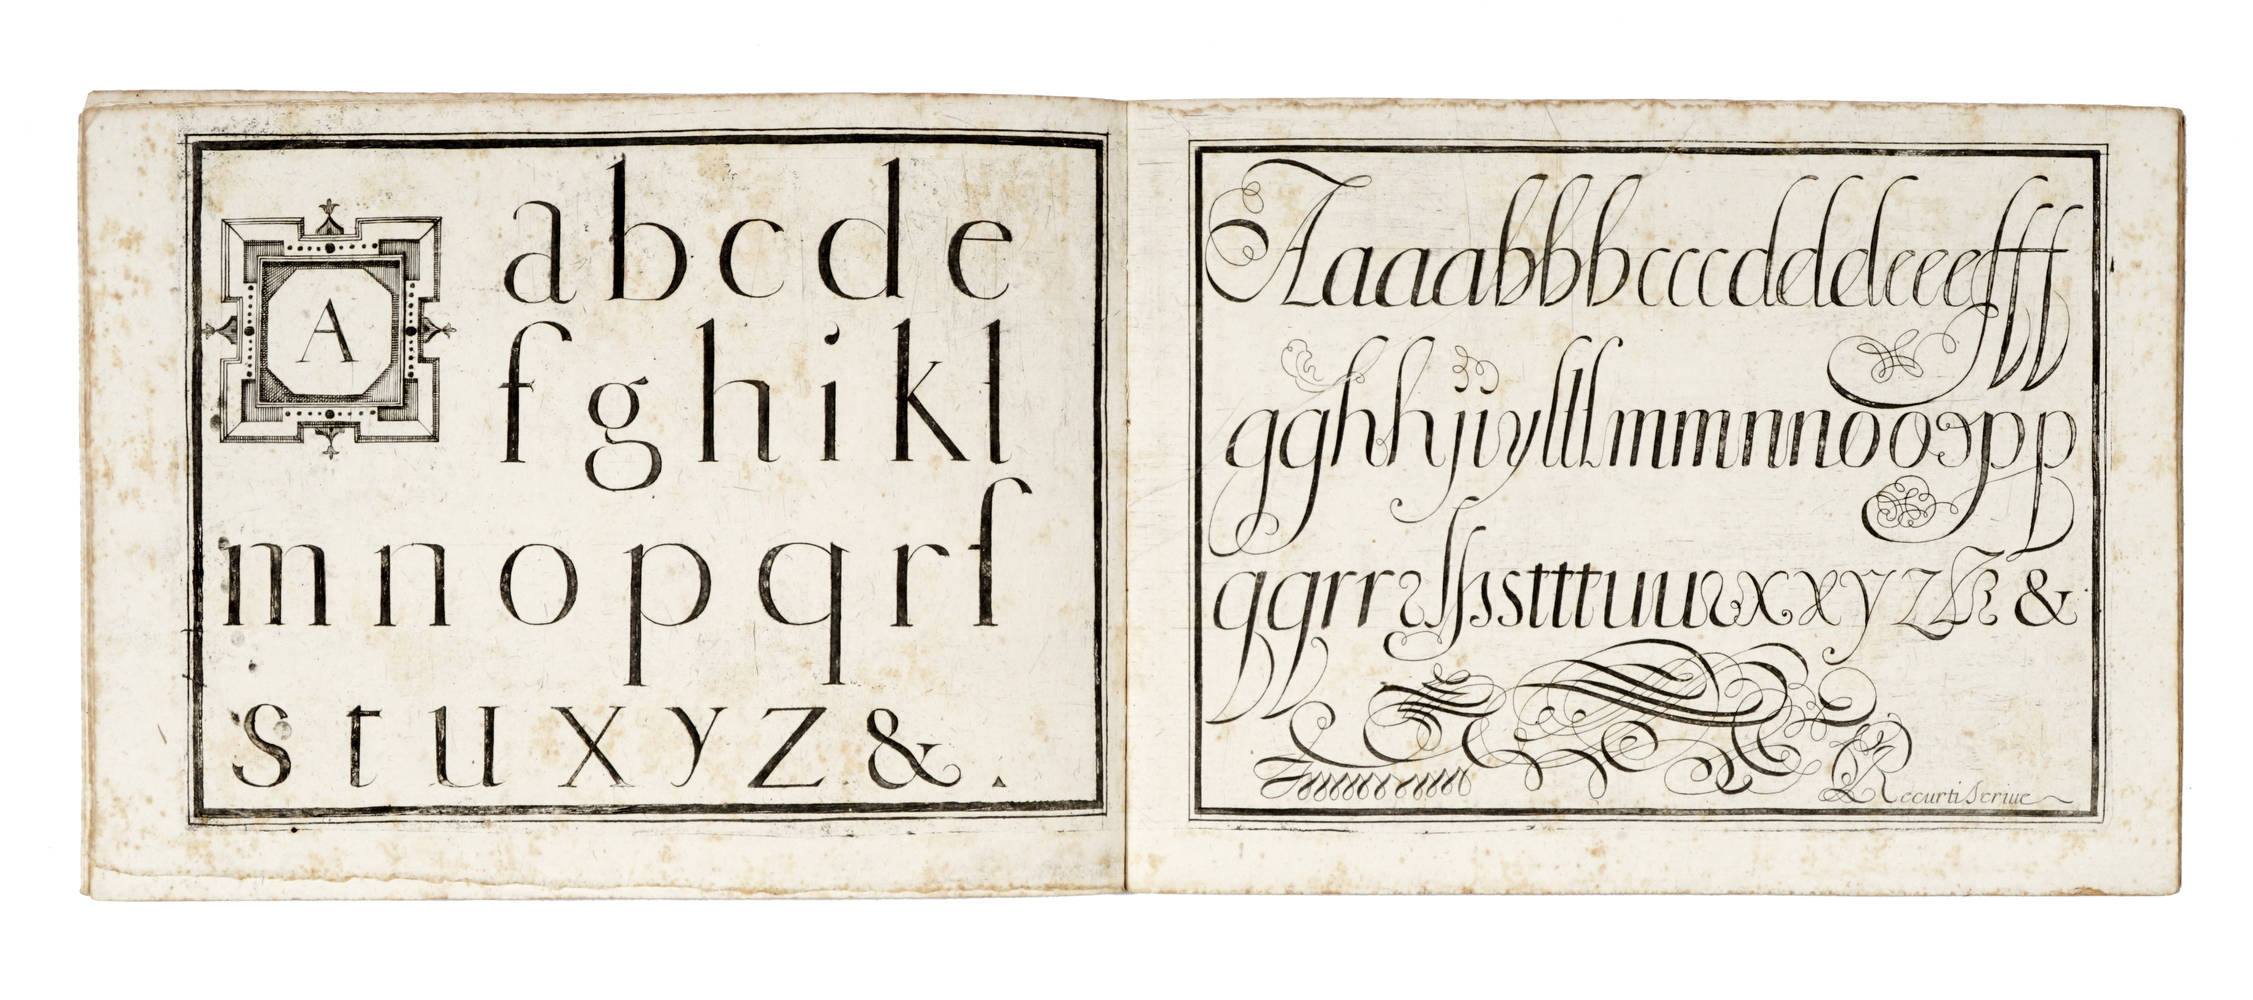 A
a b c d e
f g h i k l
m n o p q r ſ
s t u x y z & .
Aaaabbbcccdddeeefff
gghhjiylllmmnnooopp
qqrrꝛſſsstttuuvxxyzz &
R Recurti Scriue